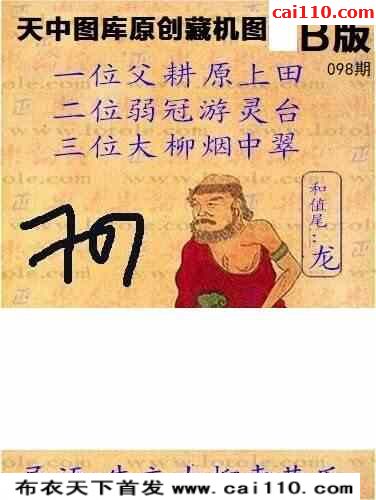 cai110.com
天中图库原创藏机图 B版
098期
一位父耕原上田
二位弱冠游灵台
三位大柳烟中翠
和值尾:龙
707
布衣天下首发 www.cai110.com